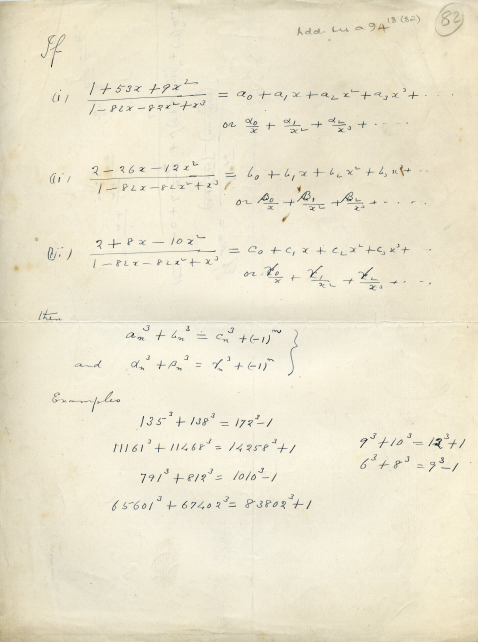 82
If
(i) (1 + 53x + 9x²)/(1 - 82x - 82x² + x³) = a₀ + a₁x + a₂x² + a₃x³ + ....
or α₀/x + α₁/x² + α₂/x³ + ....
(ii) (2 - 26x - 12x²)/(1 - 82x - 82x² + x³) = b₀ + b₁x + b₂x² + b₃x³ + ..
or β₀/x + β₁/x² + β₂/x³ + ....
(iii) (2 + 8x - 10x²)/(1 - 82x - 82x² + x³) = c₀ + c₁x + c₂x² + c₃x³ + ..
or γ₀/x + γ₁/x² + γ₂/x³ + ....
then
aₙ³ + bₙ³ = cₙ³ + (-1)ⁿ }
and αₙ³ + βₙ³ = γₙ³ + (-1)ⁿ
Examples
135³ + 138³ = 172³ - 1
11161³ + 11468³ = 14258³ + 1
791³ + 812³ = 1010³ - 1
65601³ + 67402³ = 83802³ + 1
9³ + 10³ = 12³ + 1
6³ + 8³ = 9³ - 1